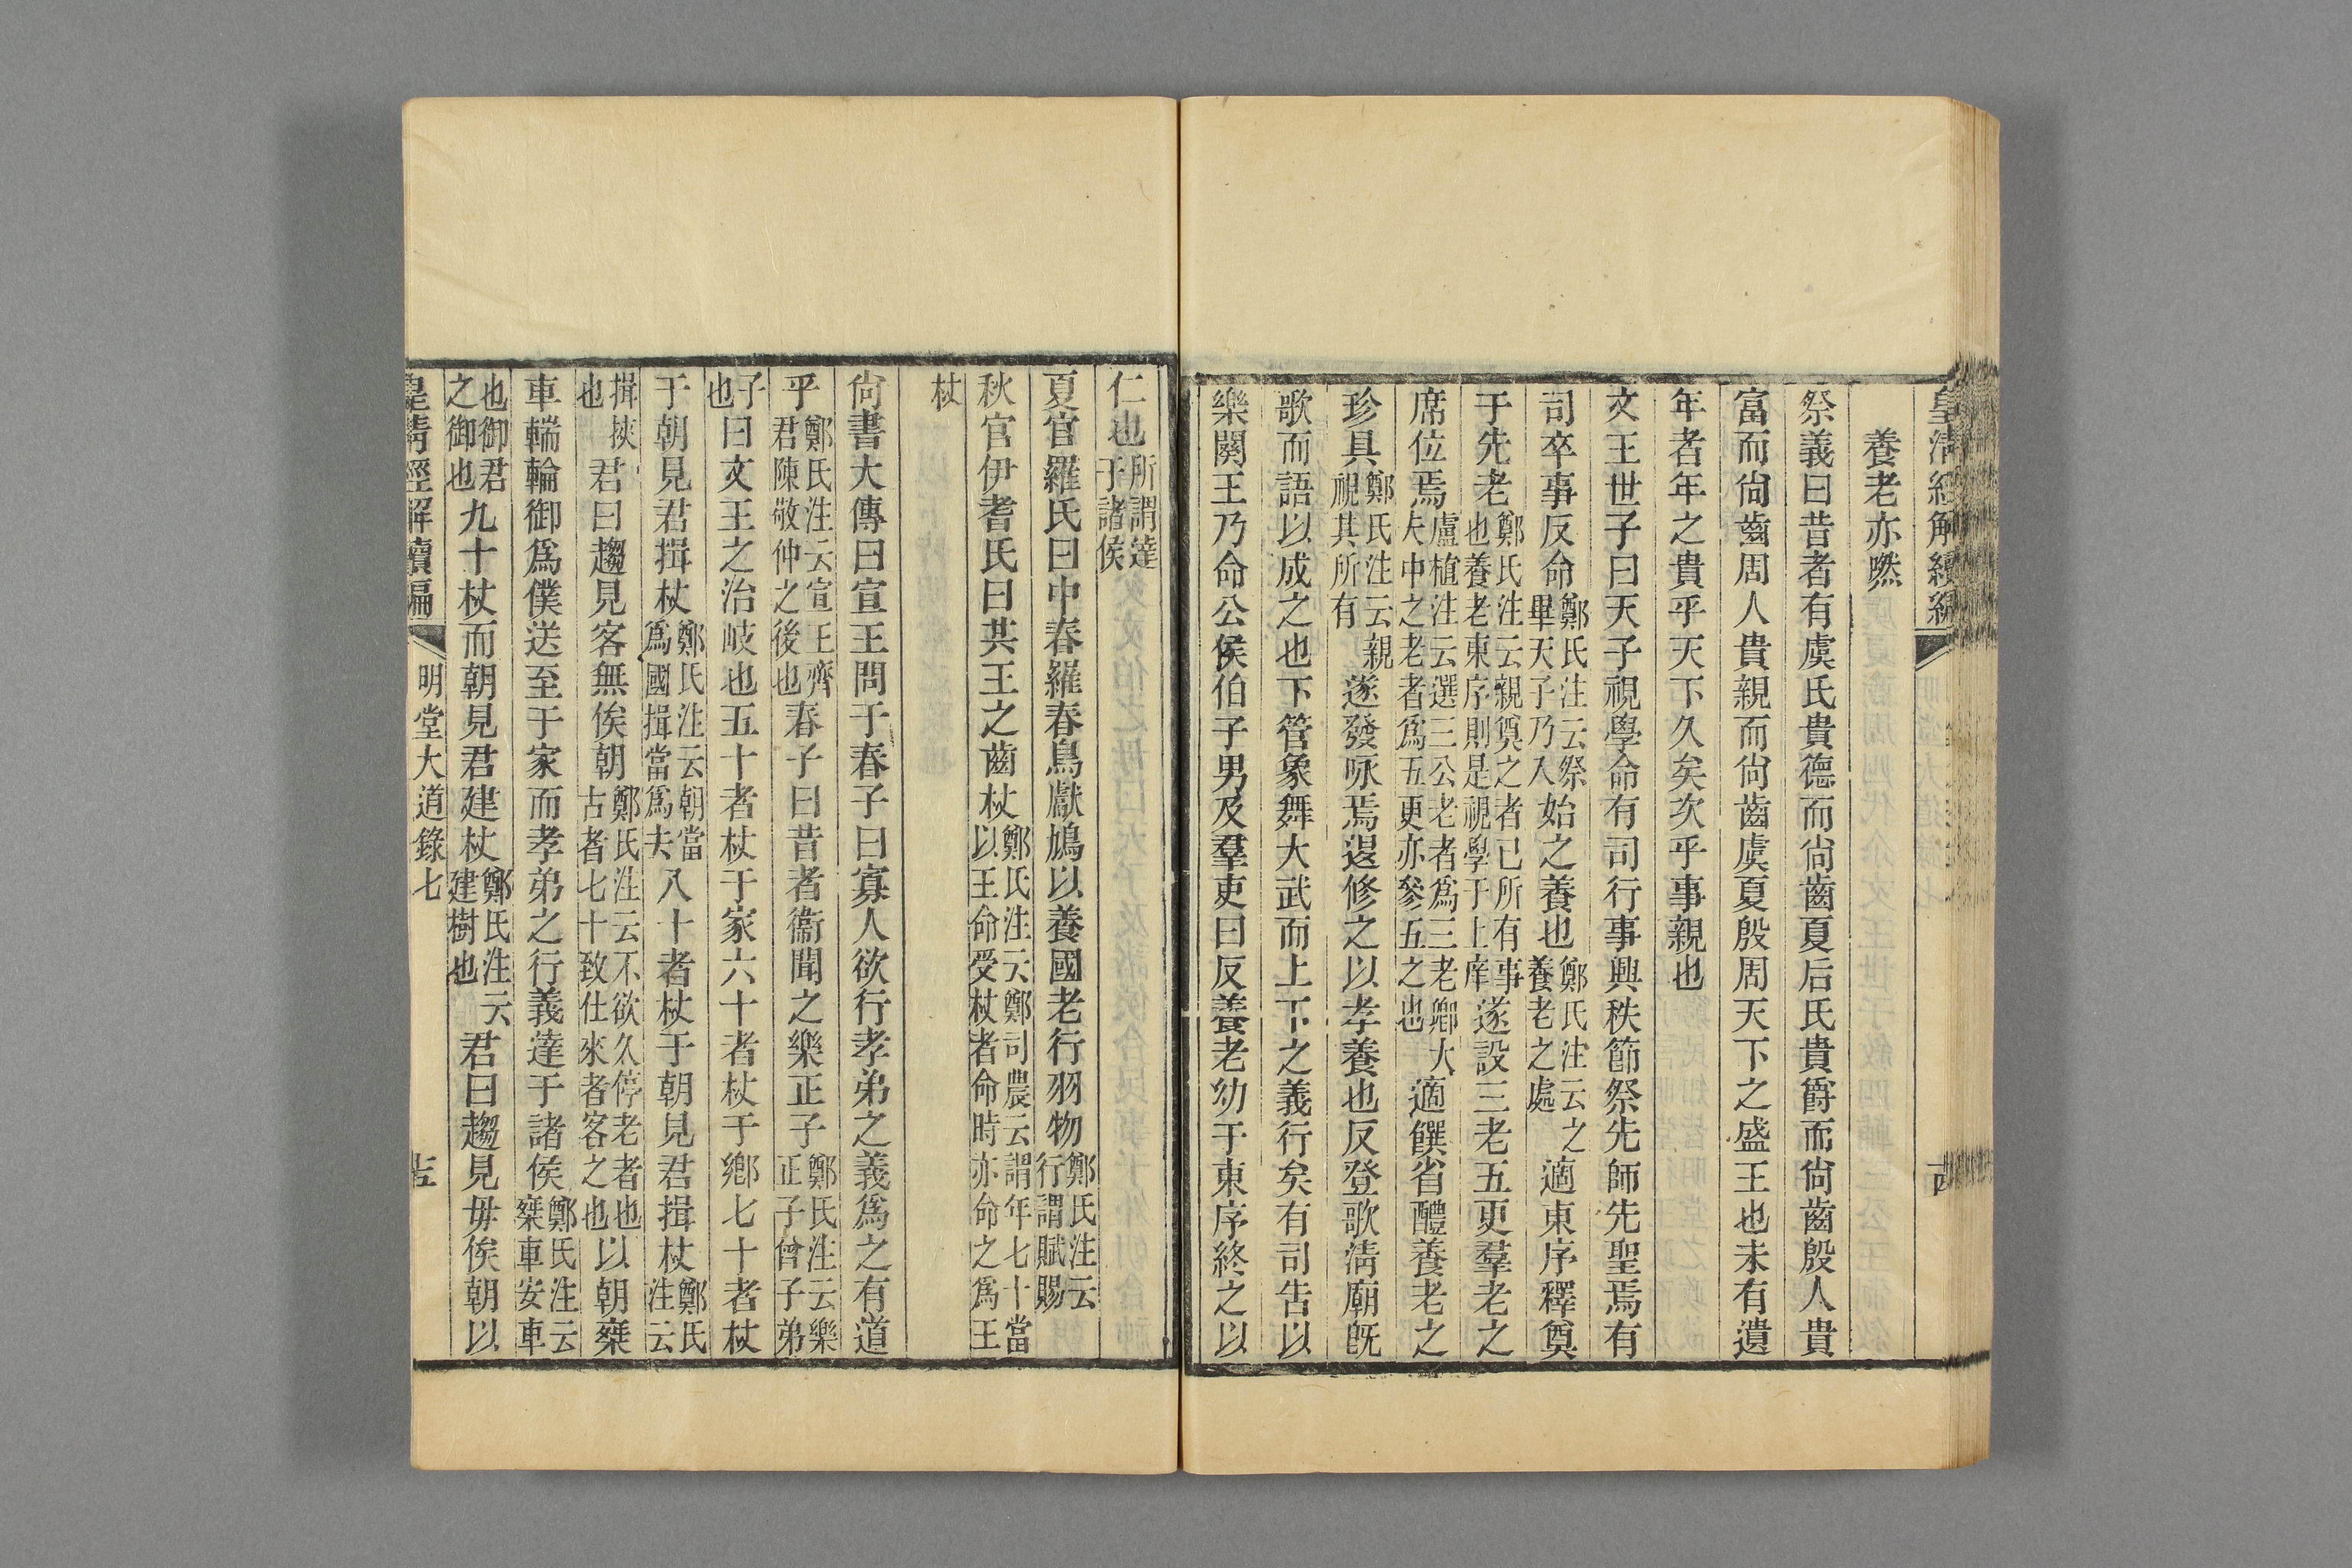 皇清經解續編
養老亦然
祭義曰昔者有虞氏貴德而尙齒夏后氏貴爵而尙齒殷人貴
富而尙齒周人貴親而尙齒虞夏殷周天下之盛王也未有遺
年者年之貴乎天下久矣次乎事親也
文王世子曰天子視學命有司行事興秩節祭先師先聖焉有
司卒事反命鄭氏注云祭畢天子乃入始之養也鄭氏注云之養老之處適東序釋奠
于先老鄭氏注云親奠之者已所有事也養老東序則是視學于上庠遂設三老五更羣老之
席位焉盧植注云選三公老者爲三老卿大夫中之老者爲五更亦參五之也適饌省醴養老之
珍具鄭氏注云親視其所有遂發咏焉退修之以孝養也反登歌淸廟旣
歌而語以成之也下管象舞大武而上下之義行矣有司告以
樂闋王乃命公侯伯子男及羣吏曰反養老幼于東序終之以
仁也所謂達于諸侯
夏官羅氏曰中春羅春鳥獻鳩以養國老行羽物鄭氏注云行謂賦賜
秋官伊耆氏曰共王之齒杖鄭氏注云鄭司農云謂年七十當以王命受杖者命時亦命之爲王
杖
尙書大傳曰宣王問于春子曰寡人欲行孝弟之義爲之有道
乎鄭氏注云宣王齊君陳敬仲之後也春子曰昔者衞聞之樂正子鄭氏注云樂正子曾子弟
子也曰文王之治岐也五十者杖于家六十者杖于鄕七十者杖
于朝見君揖杖鄭氏注云朝當爲國揖當爲去八十者杖于朝見君揖杖鄭氏注云
揖挾也君曰趨見客無俟朝鄭氏注云不欲久停老者也古者七十致仕來者客之也以朝椉
車輲輪御爲僕送至于家而孝弟之行義達于諸侯鄭氏注云椉車安車
也御君之御也九十杖而朝見君建杖鄭氏注云建樹也君曰趨見毋俟朝以
皇淸經解續編 明堂大道錄七